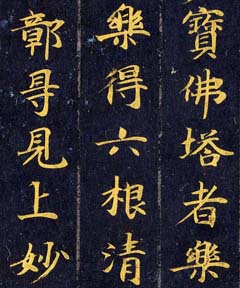 寶佛塔者樂
樂得六根清
鄣㝵見上妙